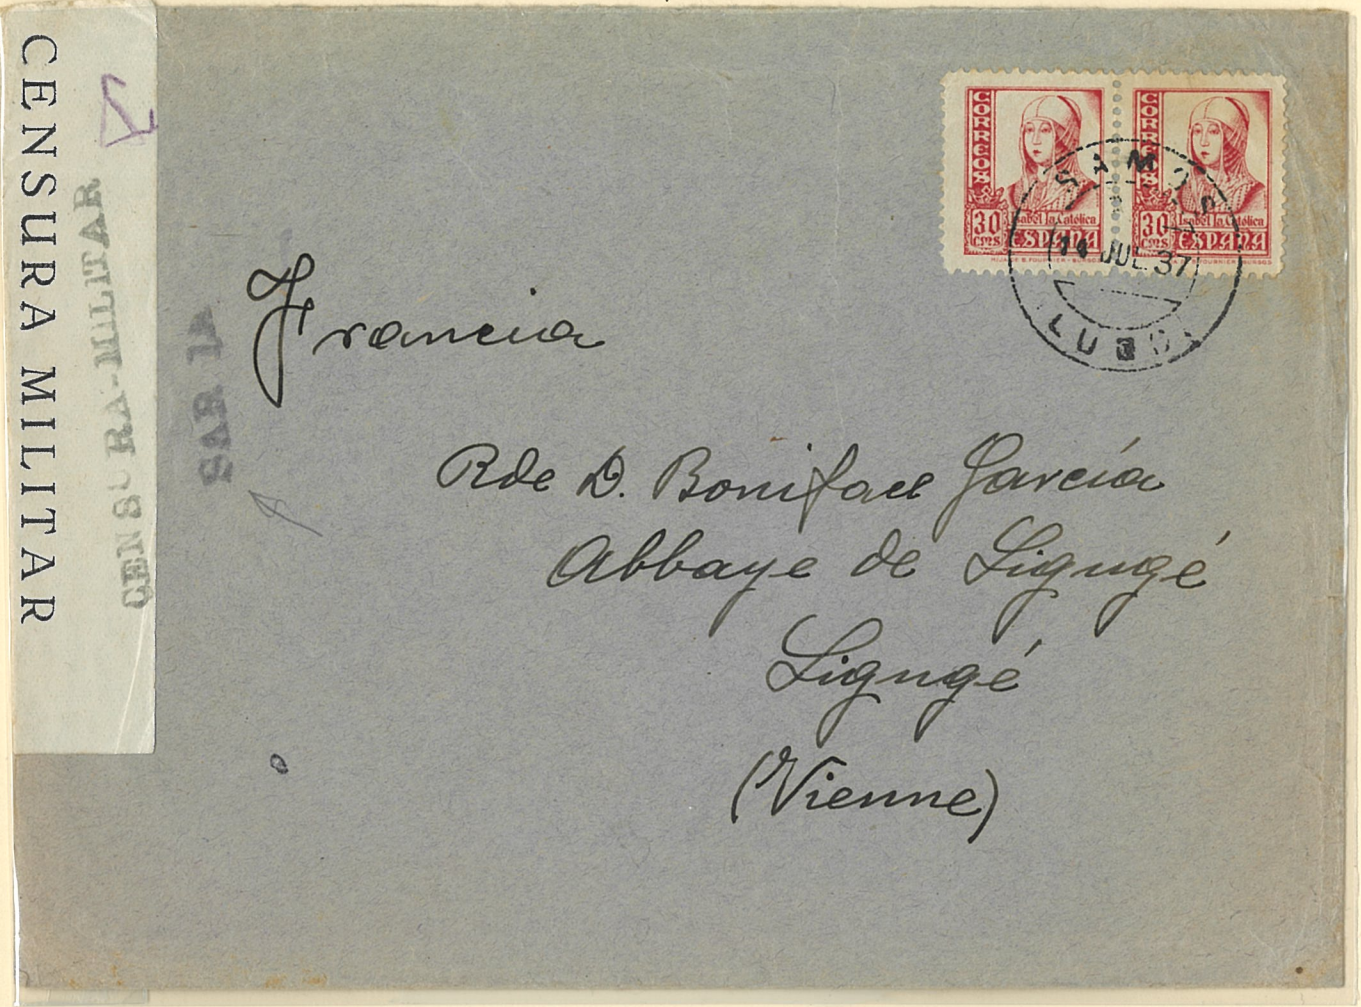 CENSURA MILITAR
CENSURA-MILITAR
SARRIA
CORREOS
30 CTS
Isabel la Católica
ESPAÑA
CORREOS
30 CTS
Isabel la Católica
ESPAÑA
SAMOS
14 JUL 37
LUGO
Francia
Rde D. Boniface García
Abbaye de Ligugé
Ligugé
(Vienne)